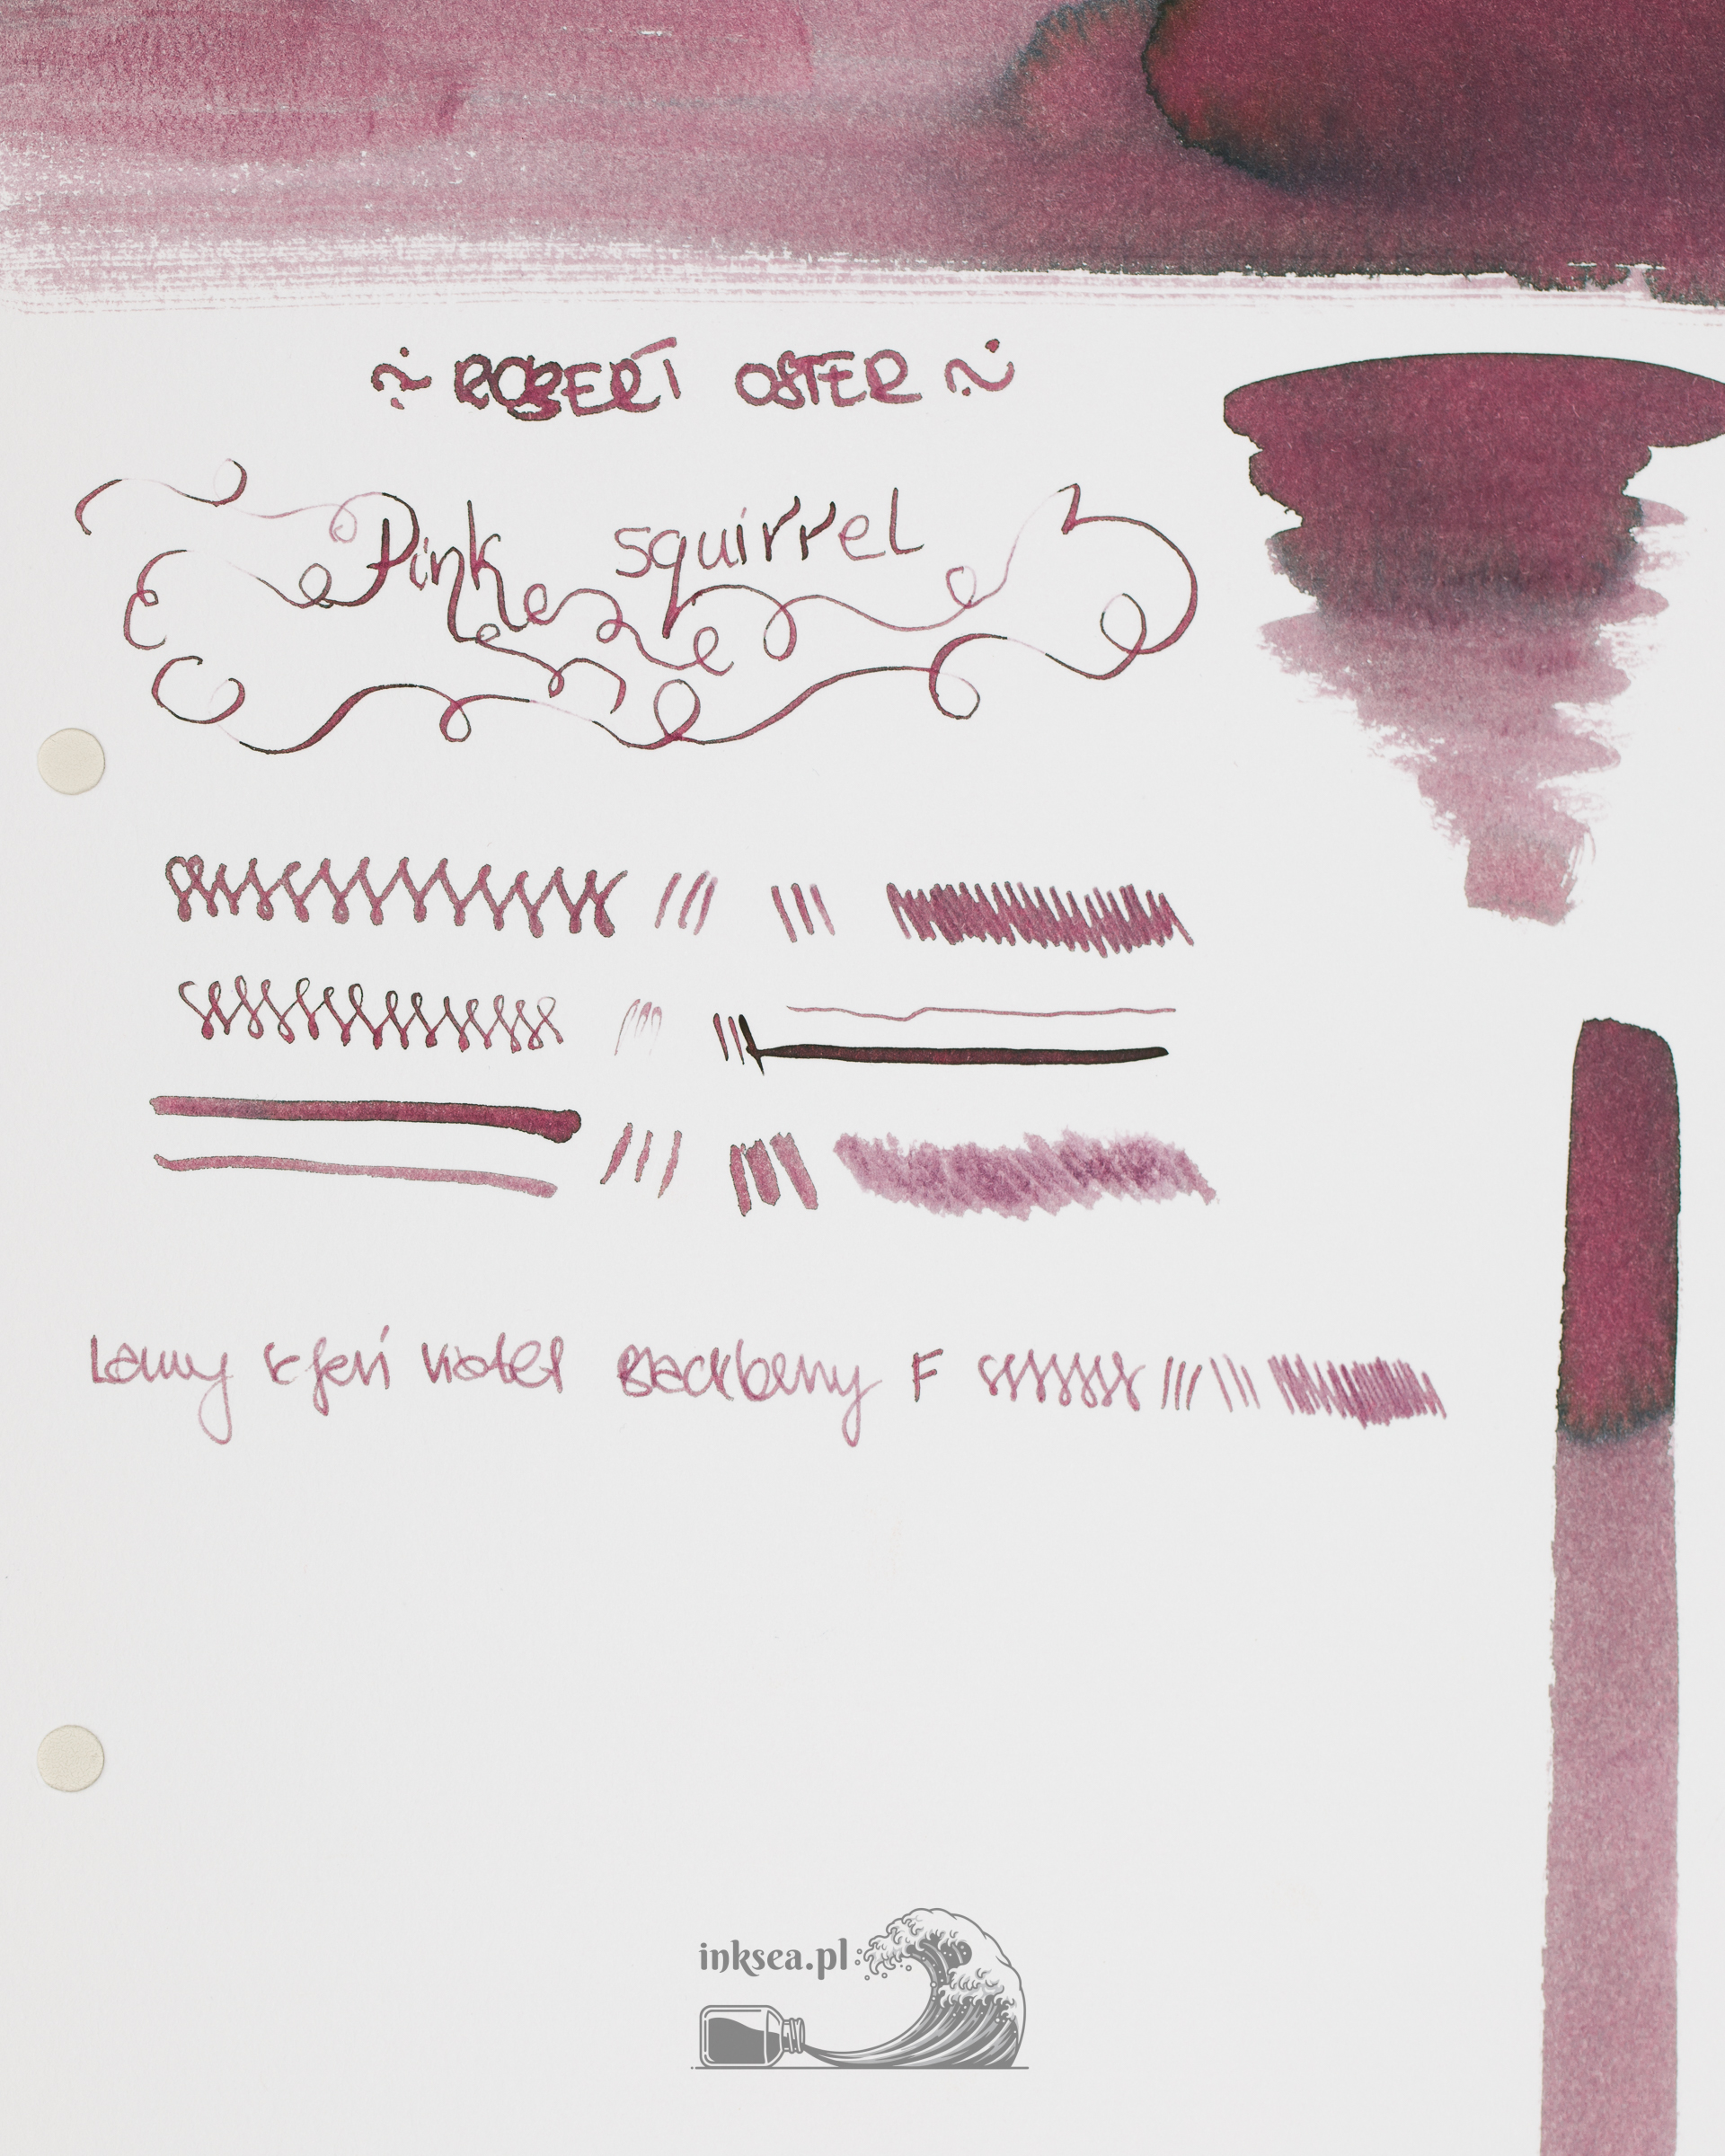 ~ ROBERT OSTER ~
Pink squirrel
Lamy safari violet blackberry F
inksea.pl